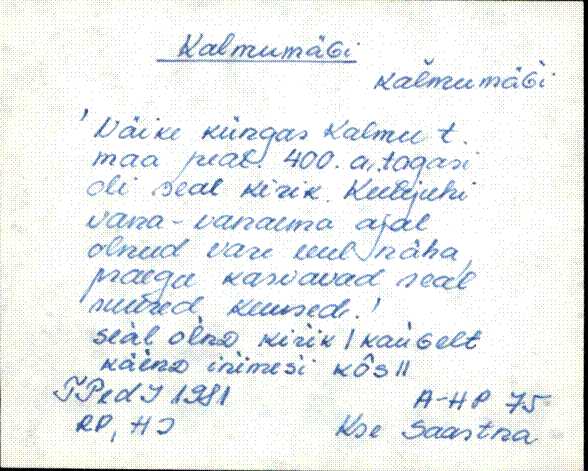 KalmumäGi
kalmumäGi
'Väike küngas Kalmu t.
maa peal. 400. a. tagasi
oli seal kirik. Keelejuhi
vana-vanaema ajal
olnud vare veel näha,
praegu kasvavad seal
suured kuused.'
seàl olnD kirik / kauGelt
käenD inimesi kôs //
TPedI 1981
A-HP 75
RP, HJ
Kse Saastna